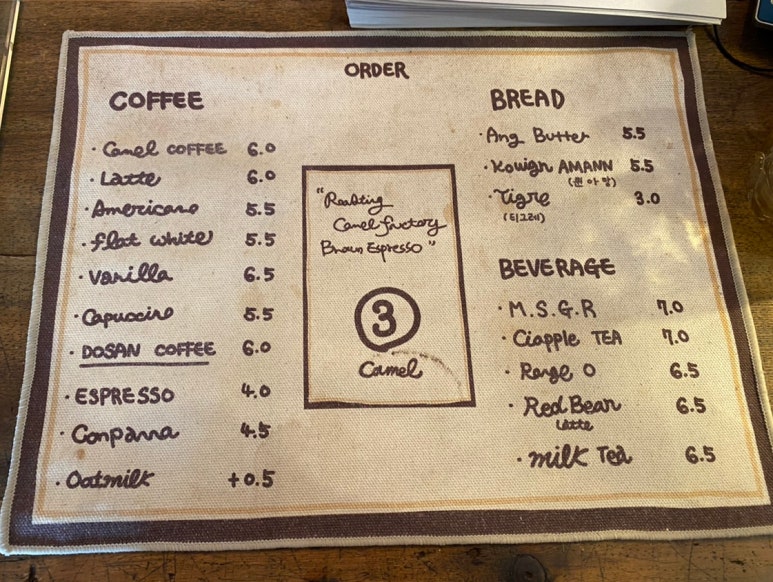 ORDER
COFFEE
· Camel COFFEE 6.0
· Latte 6.0
· Americano 5.5
· flat white 5.5
· vanilla 6.5
· Capuccino 5.5
· DOSAN COFFEE 6.0
· ESPRESSO 4.0
· Conpanna 4.5
· Oatmilk +0.5
"Roasting
Camel factory
Brown Espresso"
3
Camel
BREAD
· Ang Butter 5.5
· Kouign AMANN 5.5
(퀸아망)
· Tigre 3.0
(티그레)
BEVERAGE
· M.S.G.R 7.0
· Ciapple TEA 7.0
· Range O 6.5
· Red Bean 6.5
Latte
· milk Tea 6.5